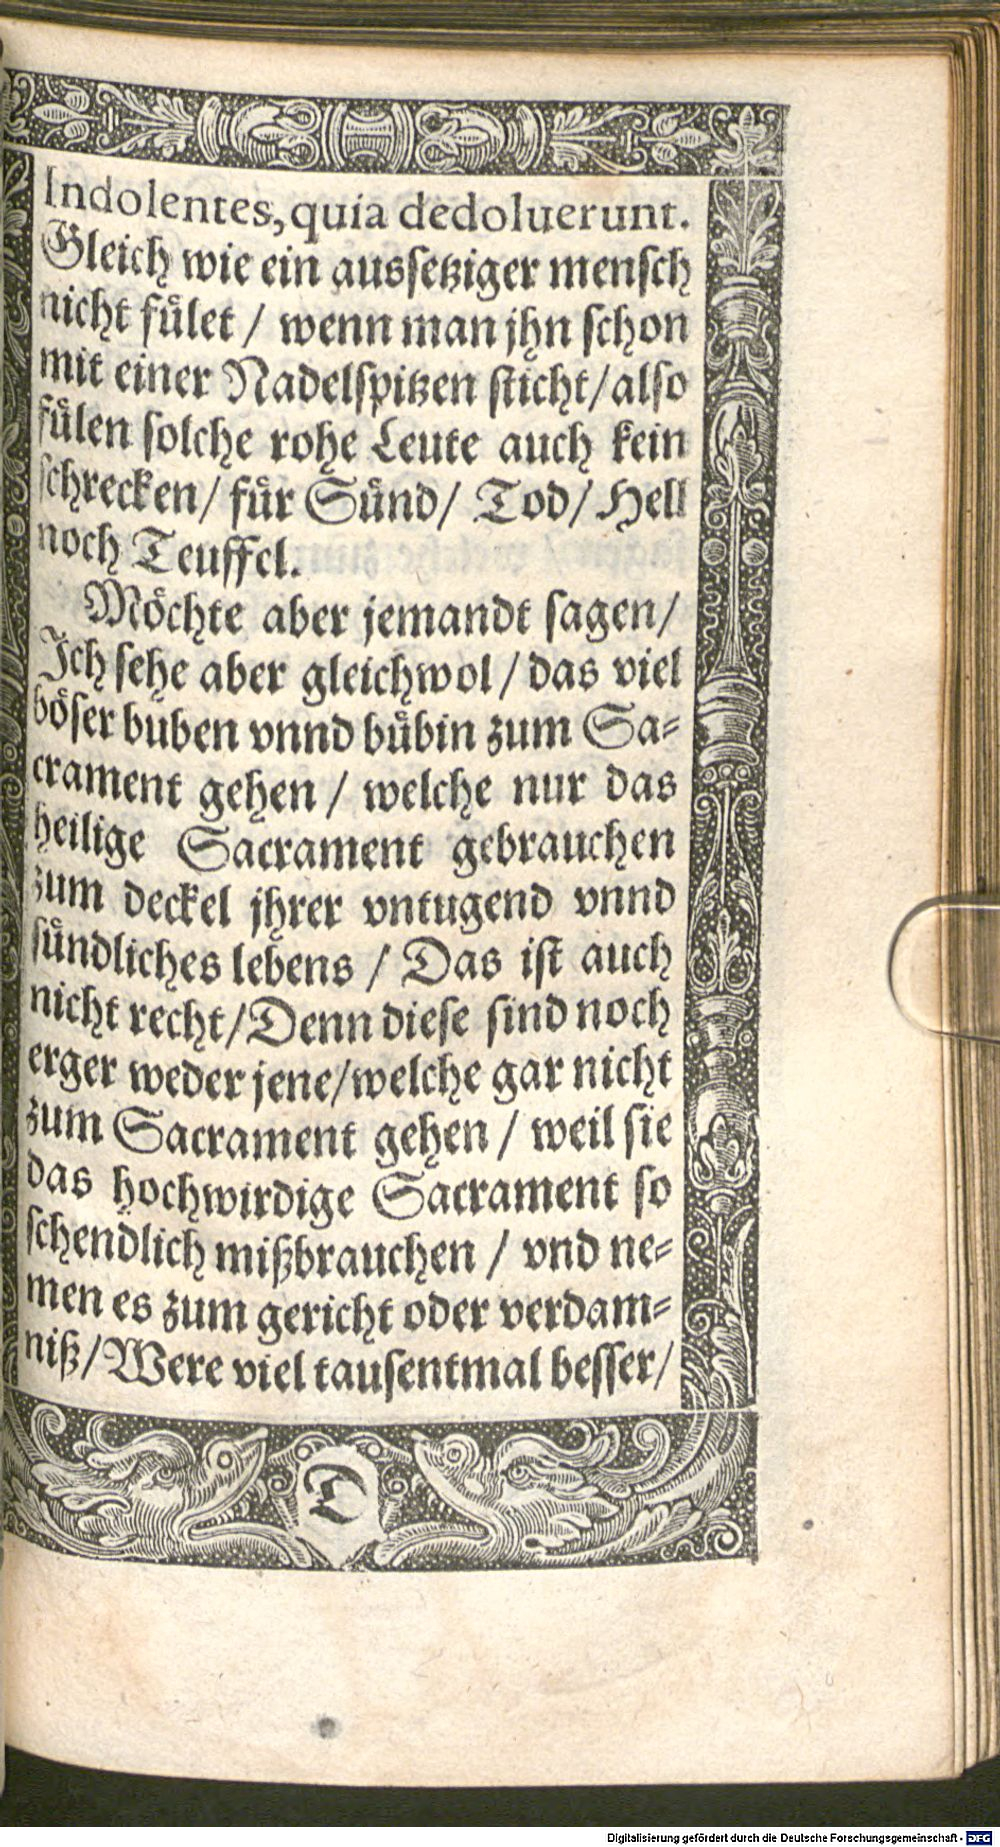 Indolentes, quia dedoluerunt.
Gleich wie ein aussetziger mensch
nicht fuͤlet / wenn man jhn schon
mit einer Nadelspitzen sticht / also
fuͤlen solche rohe Leute auch kein
schrecken / fuͤr Suͤnd / Tod / Hell
noch Teuffel.
Moͤchte aber jemandt sagen /
Ich sehe aber gleichwol / das viel
boͤser buben vnnd buͤbin zum Sa-
crament gehen / welche nur das
heilige Sacrament gebrauchen
zum deckel jhrer vntugend vnnd
suͤndliches lebens / Das ist auch
nicht recht / Denn diese sind noch
erger weder jene / welche gar nicht
zum Sacrament gehen / weil sie
das hochwirdige Sacrament so
schendlich mißbrauchen / vnd ne-
men es zum gericht oder verdam-
niß / Were viel tausentmal besser /
T
Digitalisierung gefördert durch die Deutsche Forschungsgemeinschaft - DFG